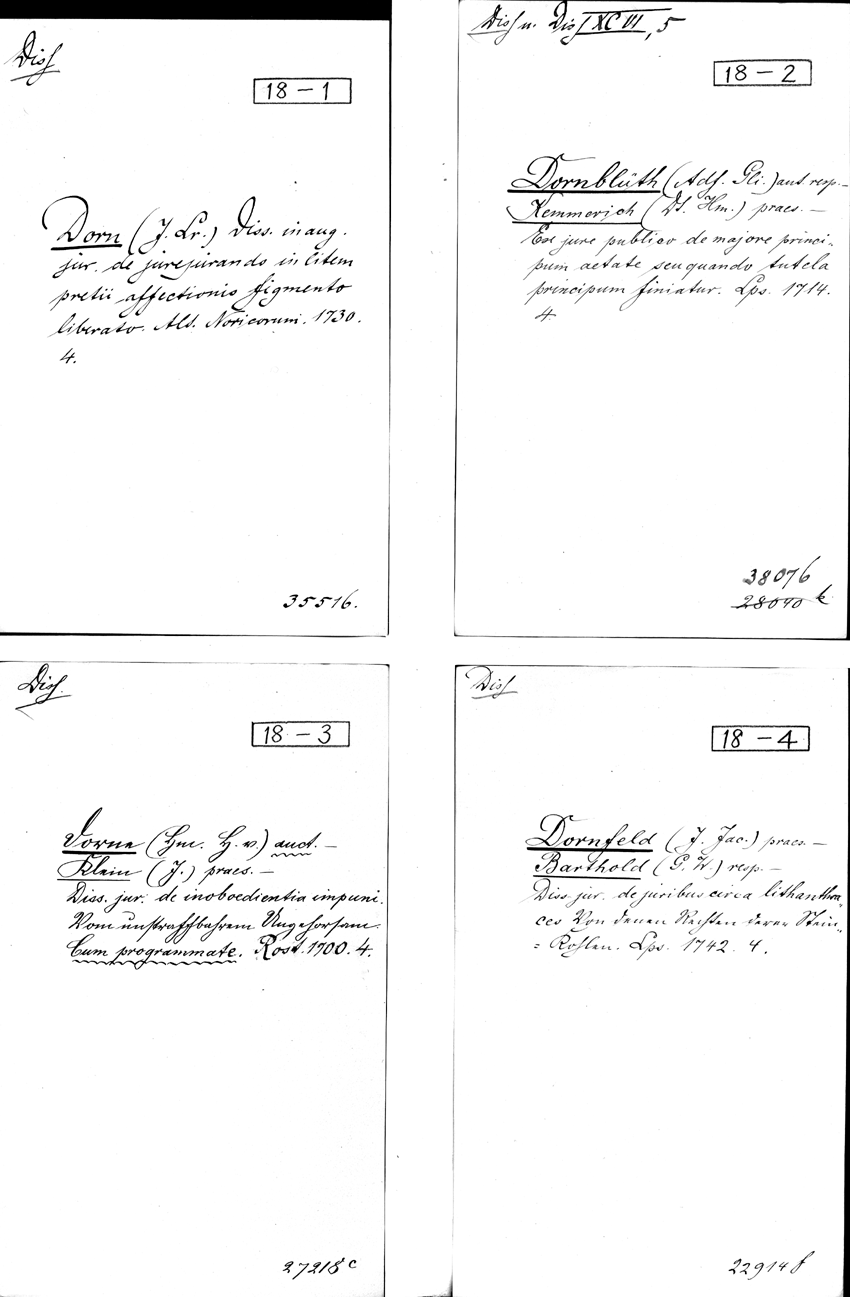 Diss
18 - 1
Dorn (J. Lr.) Diss. inaug.
jur. de jurejurando in litem
pretii affectionis figmento
liberato. Alt. Noricorum. 1730.
4.
35516.
Diss u. Diss XCVI, 5
18 - 2
Dornblüth (Adf. Gli.) aut resp. —
Kemmerich (Dt. Hm.) praes. —
Ex jure publico de majore princi-
pum aetate seu quando tutela
principum finiatur. Lps. 1714.
4
38076
28040 k
Diss.
18 - 3
Dorne (Hm. H. v.) auct. —
Klein (J.) praes. —
Diss. jur. de inoboedientia impuni.
Vom unstraffbahrem Ungehorsam.
Cum programmate. Rost. 1700. 4.
27218 c
Diss
18 - 4
Dornfeld (J. Jac.) praes. —
Barthold (G. W.) resp. —
Diss. jur. de juribus circa lithanthra-
ces Von denen Rechten derer Stein-
= Kohlen. Lps. 1742. 4.
22914 f